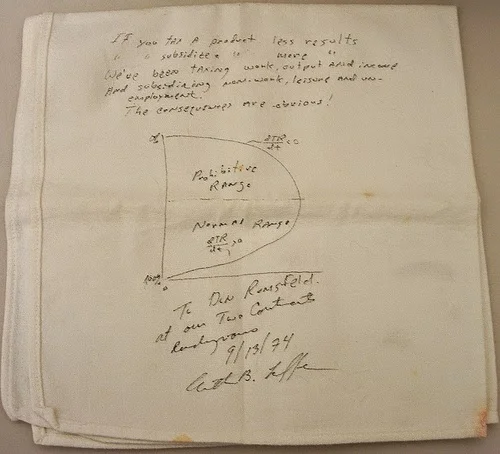 If you tax a product less results
" " subsidize " " more "
We've been taxing work, output and income
And subsidizing non-work, leisure and un-
employment.
The consequences are obvious!
∂TR/∂t < 0
Prohibitive
Range
Normal Range
∂TR/∂t > 0
100%
0
To Don Rumsfeld
at our Two Continents
Rendezvous
9/13/74
Arthur B. Laffer